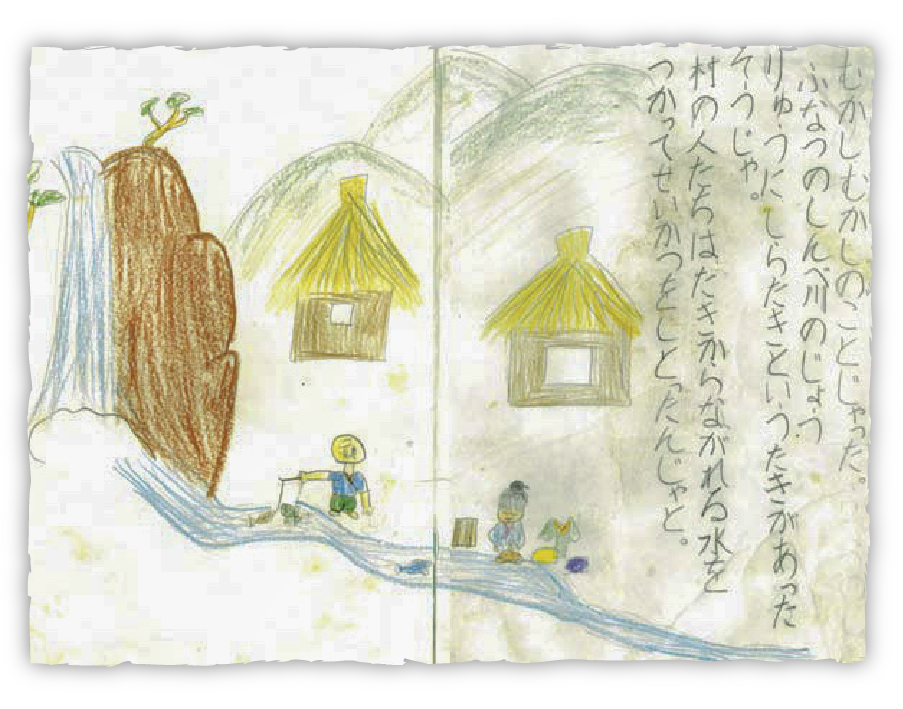 むかしむかしのことじゃった。
ふなつのしんべ川のじょう
りゅうに しらたきというたきがあった
そうじゃ。
村の人たちはたきからながれる水を
つかってせいかつをしとったんじゃと。